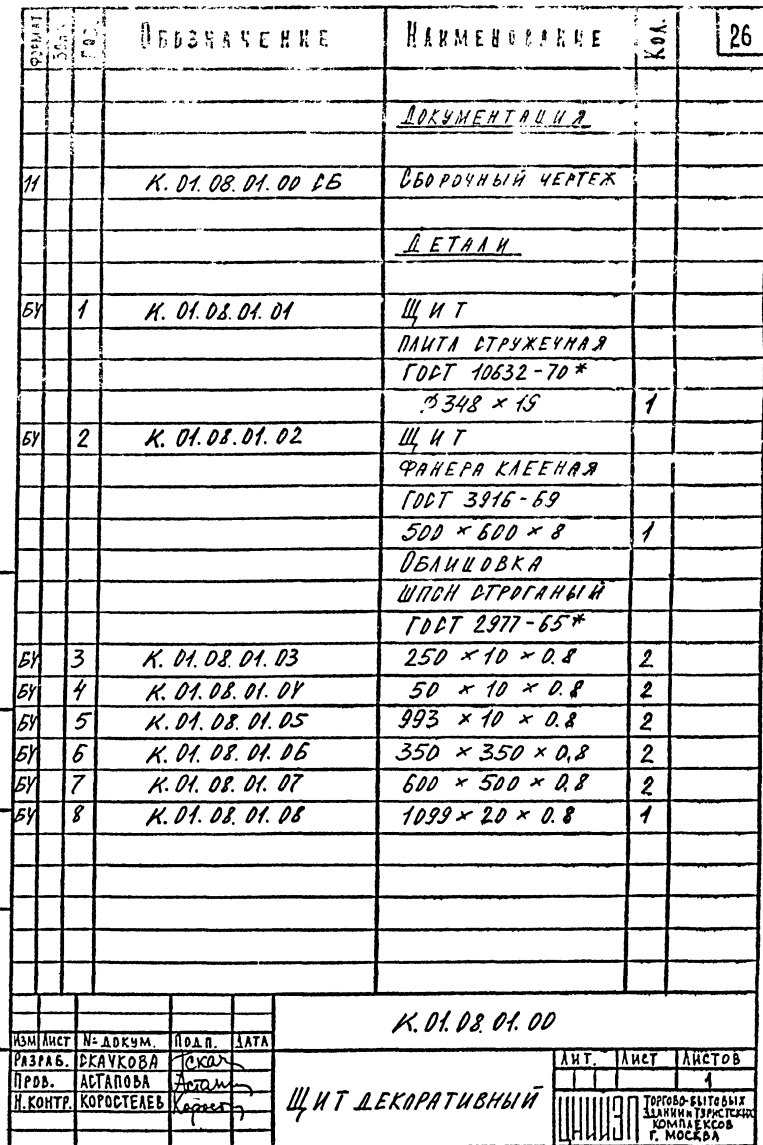 ФОРМАТ ЗОНА ПОЗ. ОБОЗНАЧЕНИЕ НАИМЕНОВАНИЕ КОЛ. 26
ДОКУМЕНТАЦИЯ
11 К.01.08.01.00 СБ СБОРОЧНЫЙ ЧЕРТЕЖ
ДЕТАЛИ
БЧ 1 К.01.08.01.01 ЩИТ
ПЛИТА СТРУЖЕЧНАЯ
ГОСТ 10632-70*
348 × 19 1
БЧ 2 К.01.08.01.02 ЩИТ
ФАНЕРА КЛЕЕНАЯ
ГОСТ 3916-69
500 × 600 × 8 1
ОБЛИЦОВКА
ШПОН СТРОГАНЫЙ
ГОСТ 2977-65*
БЧ 3 К.01.08.01.03 250 × 10 × 0.8 2
БЧ 4 К.01.08.01.04 50 × 10 × 0.8 2
БЧ 5 К.01.08.01.05 993 × 10 × 0.8 2
БЧ 6 К.01.08.01.06 350 × 350 × 0,8 2
БЧ 7 К.01.08.01.07 600 × 500 × 0,8 2
БЧ 8 К.01.08.01.08 1099 × 20 × 0.8 1
К.01.08.01.00
ИЗМ ЛИСТ № ДОКУМ. ПОДП. ДАТА
РАЗРАБ. СКАЧКОВА
ПРОВ. АСТАПОВА
Н.КОНТР. КОРОСТЕЛЕВ
ЩИТ ДЕКОРАТИВНЫЙ
ЛИТ. ЛИСТ ЛИСТОВ
1
ЦНИИЭП
ТОРГОВО-БЫТОВЫХ
ЗДАНИЙ И ТУРИСТСКИХ
КОМПЛЕКСОВ
Г. МОСКВА